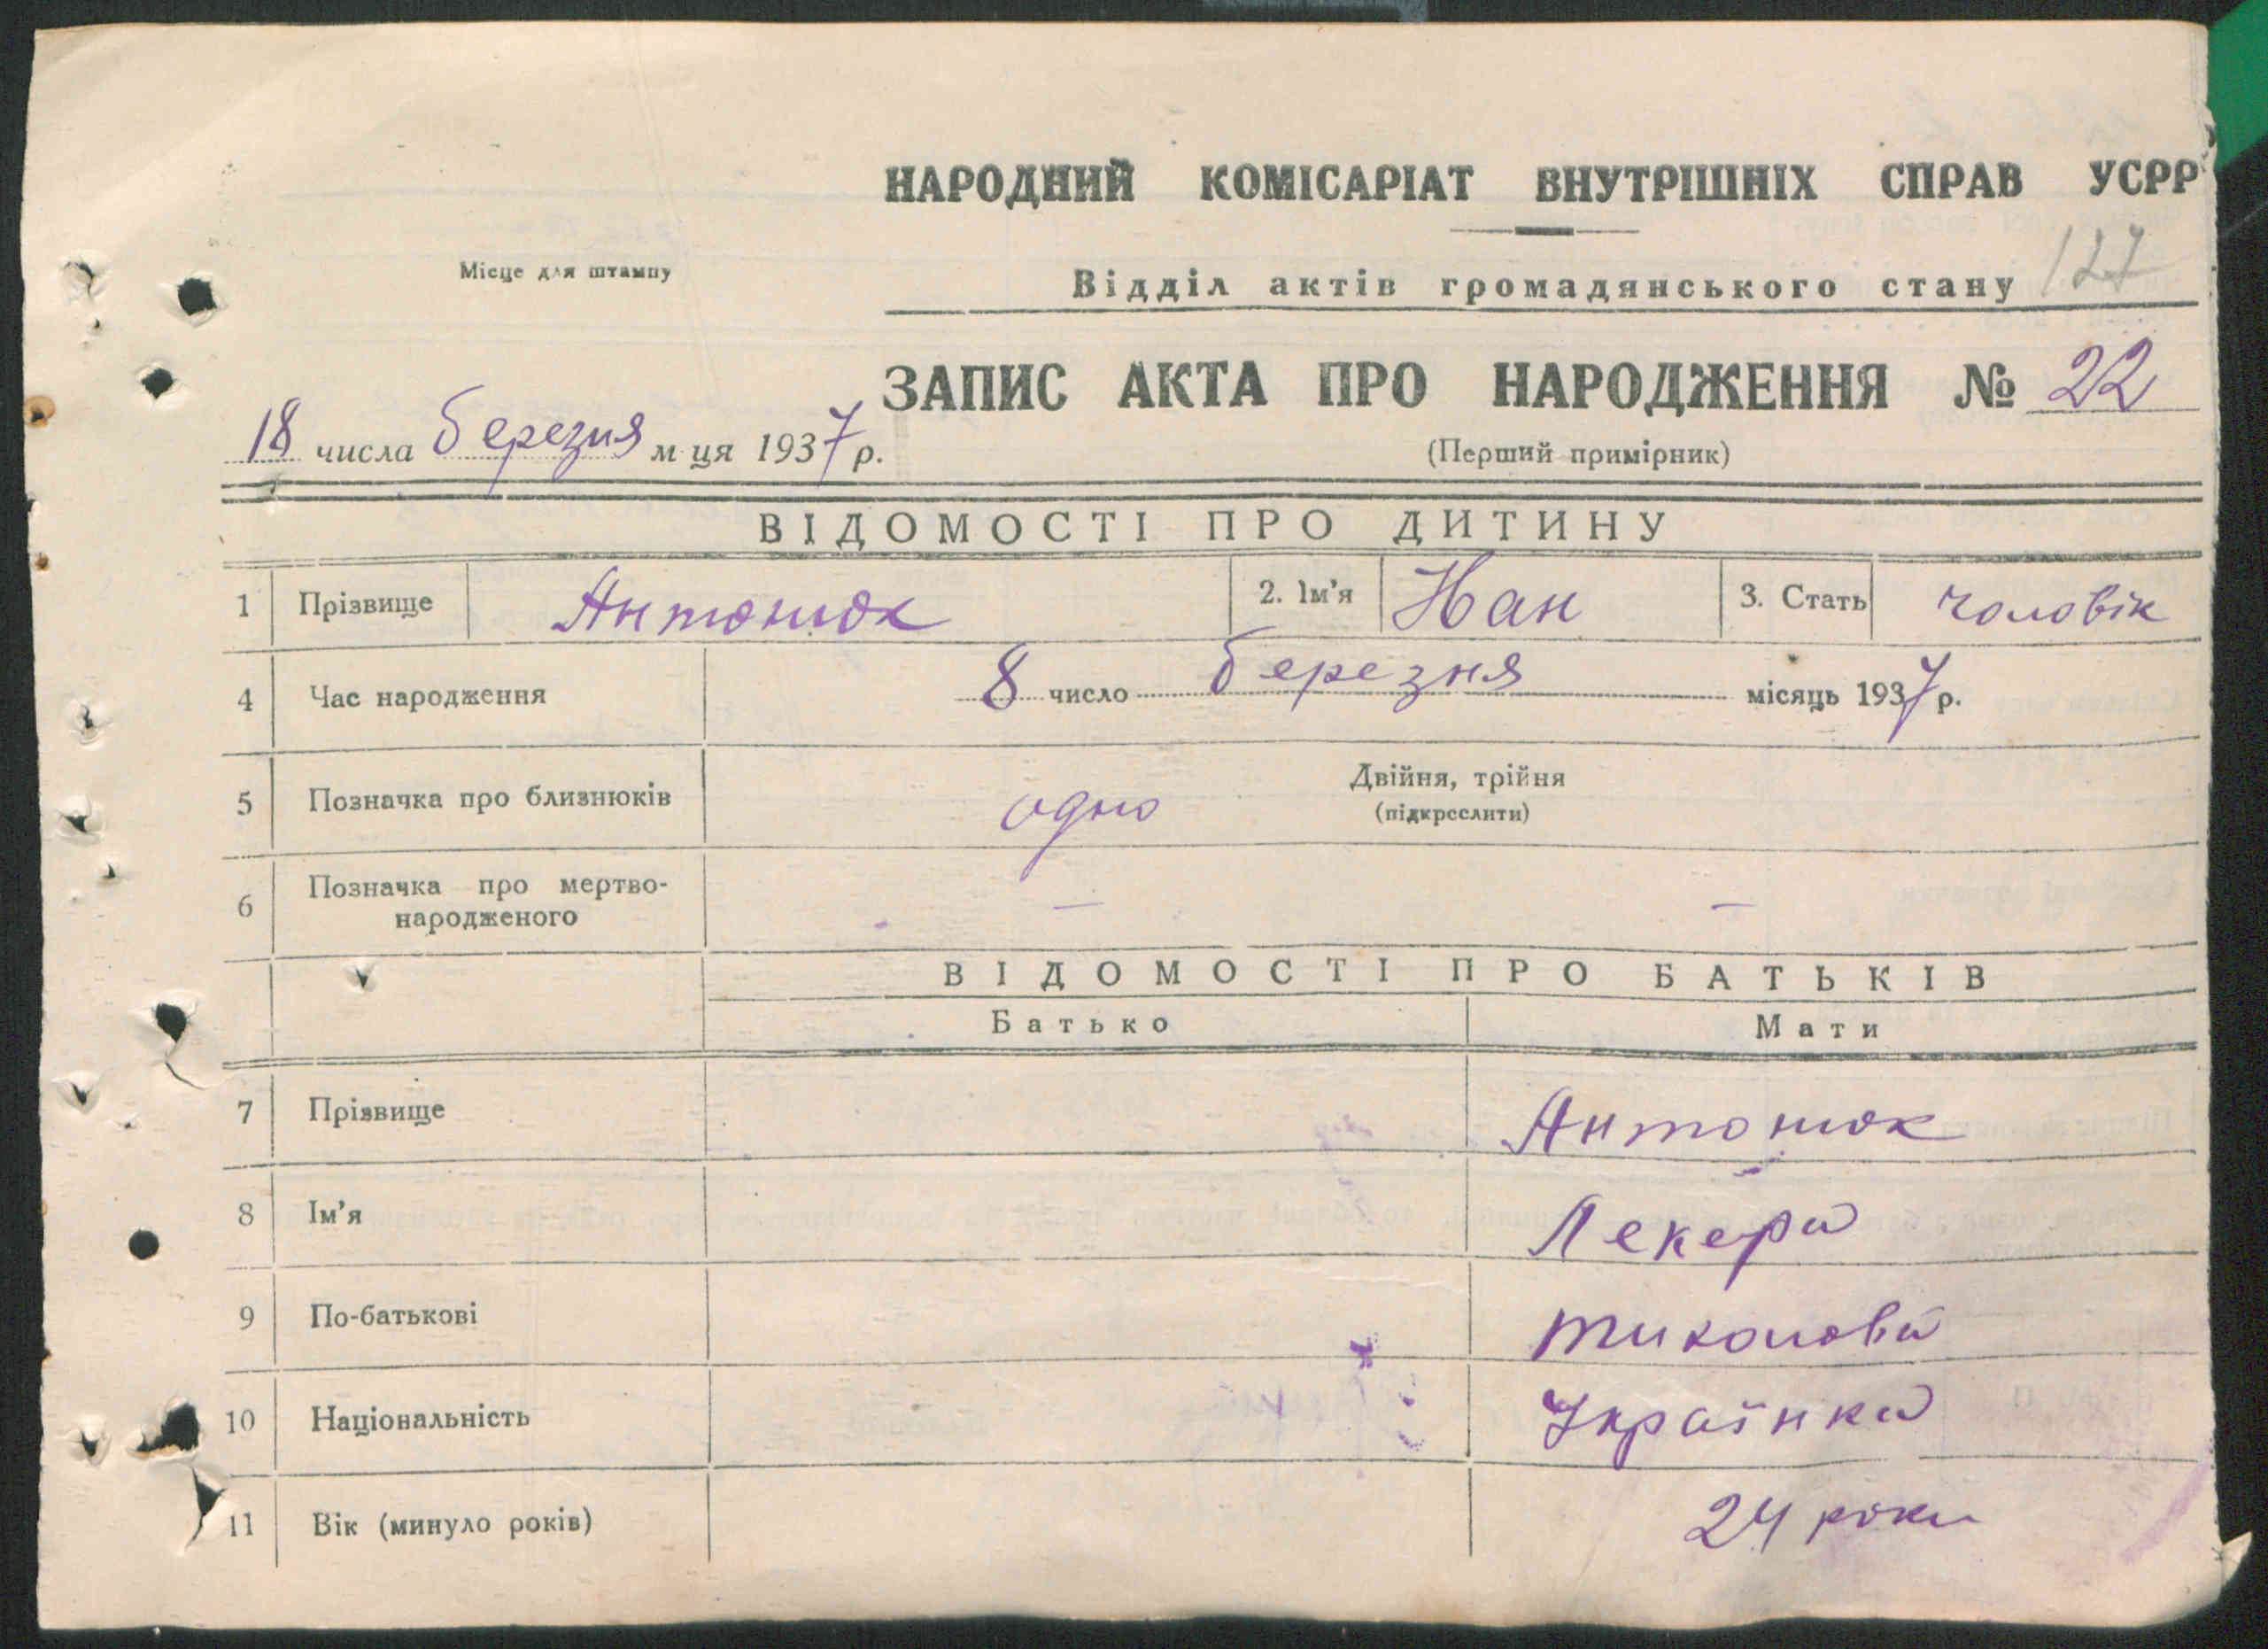 НАРОДНИЙ КОМІСАРІАТ ВНУТРІШНІХ СПРАВ УСРР
Місце для штампу
Відділ актів громадянського стану 127
ЗАПИС АКТА ПРО НАРОДЖЕННЯ № 22
18 числа березня м-ця 1937 р.
(Перший примірник)
ВІДОМОСТІ ПРО ДИТИНУ
1 Прізвище Антонюк 2. Ім'я Іван 3. Стать чоловік
4 Час народження 8 число березня місяць 1937 р.
5 Позначка про близнюків одно Двійня, трійня
(підкреслити)
6 Позначка про мертво-
народженого — —
ВІДОМОСТІ ПРО БАТЬКІВ
Батько Мати
7 Прізвище Антонюк
8 Ім'я Лекера
9 По-батькові
10 Національність Українка
11 Вік (минуло років) 24 роки